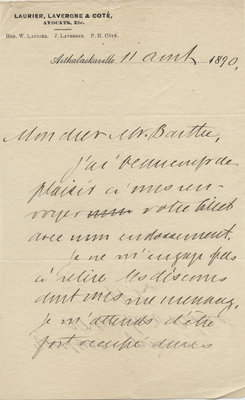 LAURIER, LAVERGNE & COTÉ,
AVOCATS, Etc.
HON. W. LAURIER. J. LAVERGNE. P. H. COTÉ.
Arthabaskaville 11 août 1890.
Monsieur Mr. Barthe,
J'ai beaucoup de
plaisir à vous en-
voyer votre billet
avec mon endossement.
Je ne m'engage pas
à relire les discours
dont vous me menacez,
Je m'attends d'être
fort occupé dans